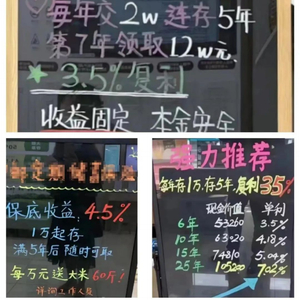 每年交2w连存5年
第7年领取12w元
3.5%复利
收益固定 本金安全
保底收益: 4.5%
1万起存
满5年后随时可取
每万元送大米60斤!
详询工作人员
强力推荐
每年存1万,存5年,复利3.5%
现金价值 - 单利
6年 53260 3.5%
10年 63920 4.18%
15年 74810 5.04%
25年 105200 7.02%